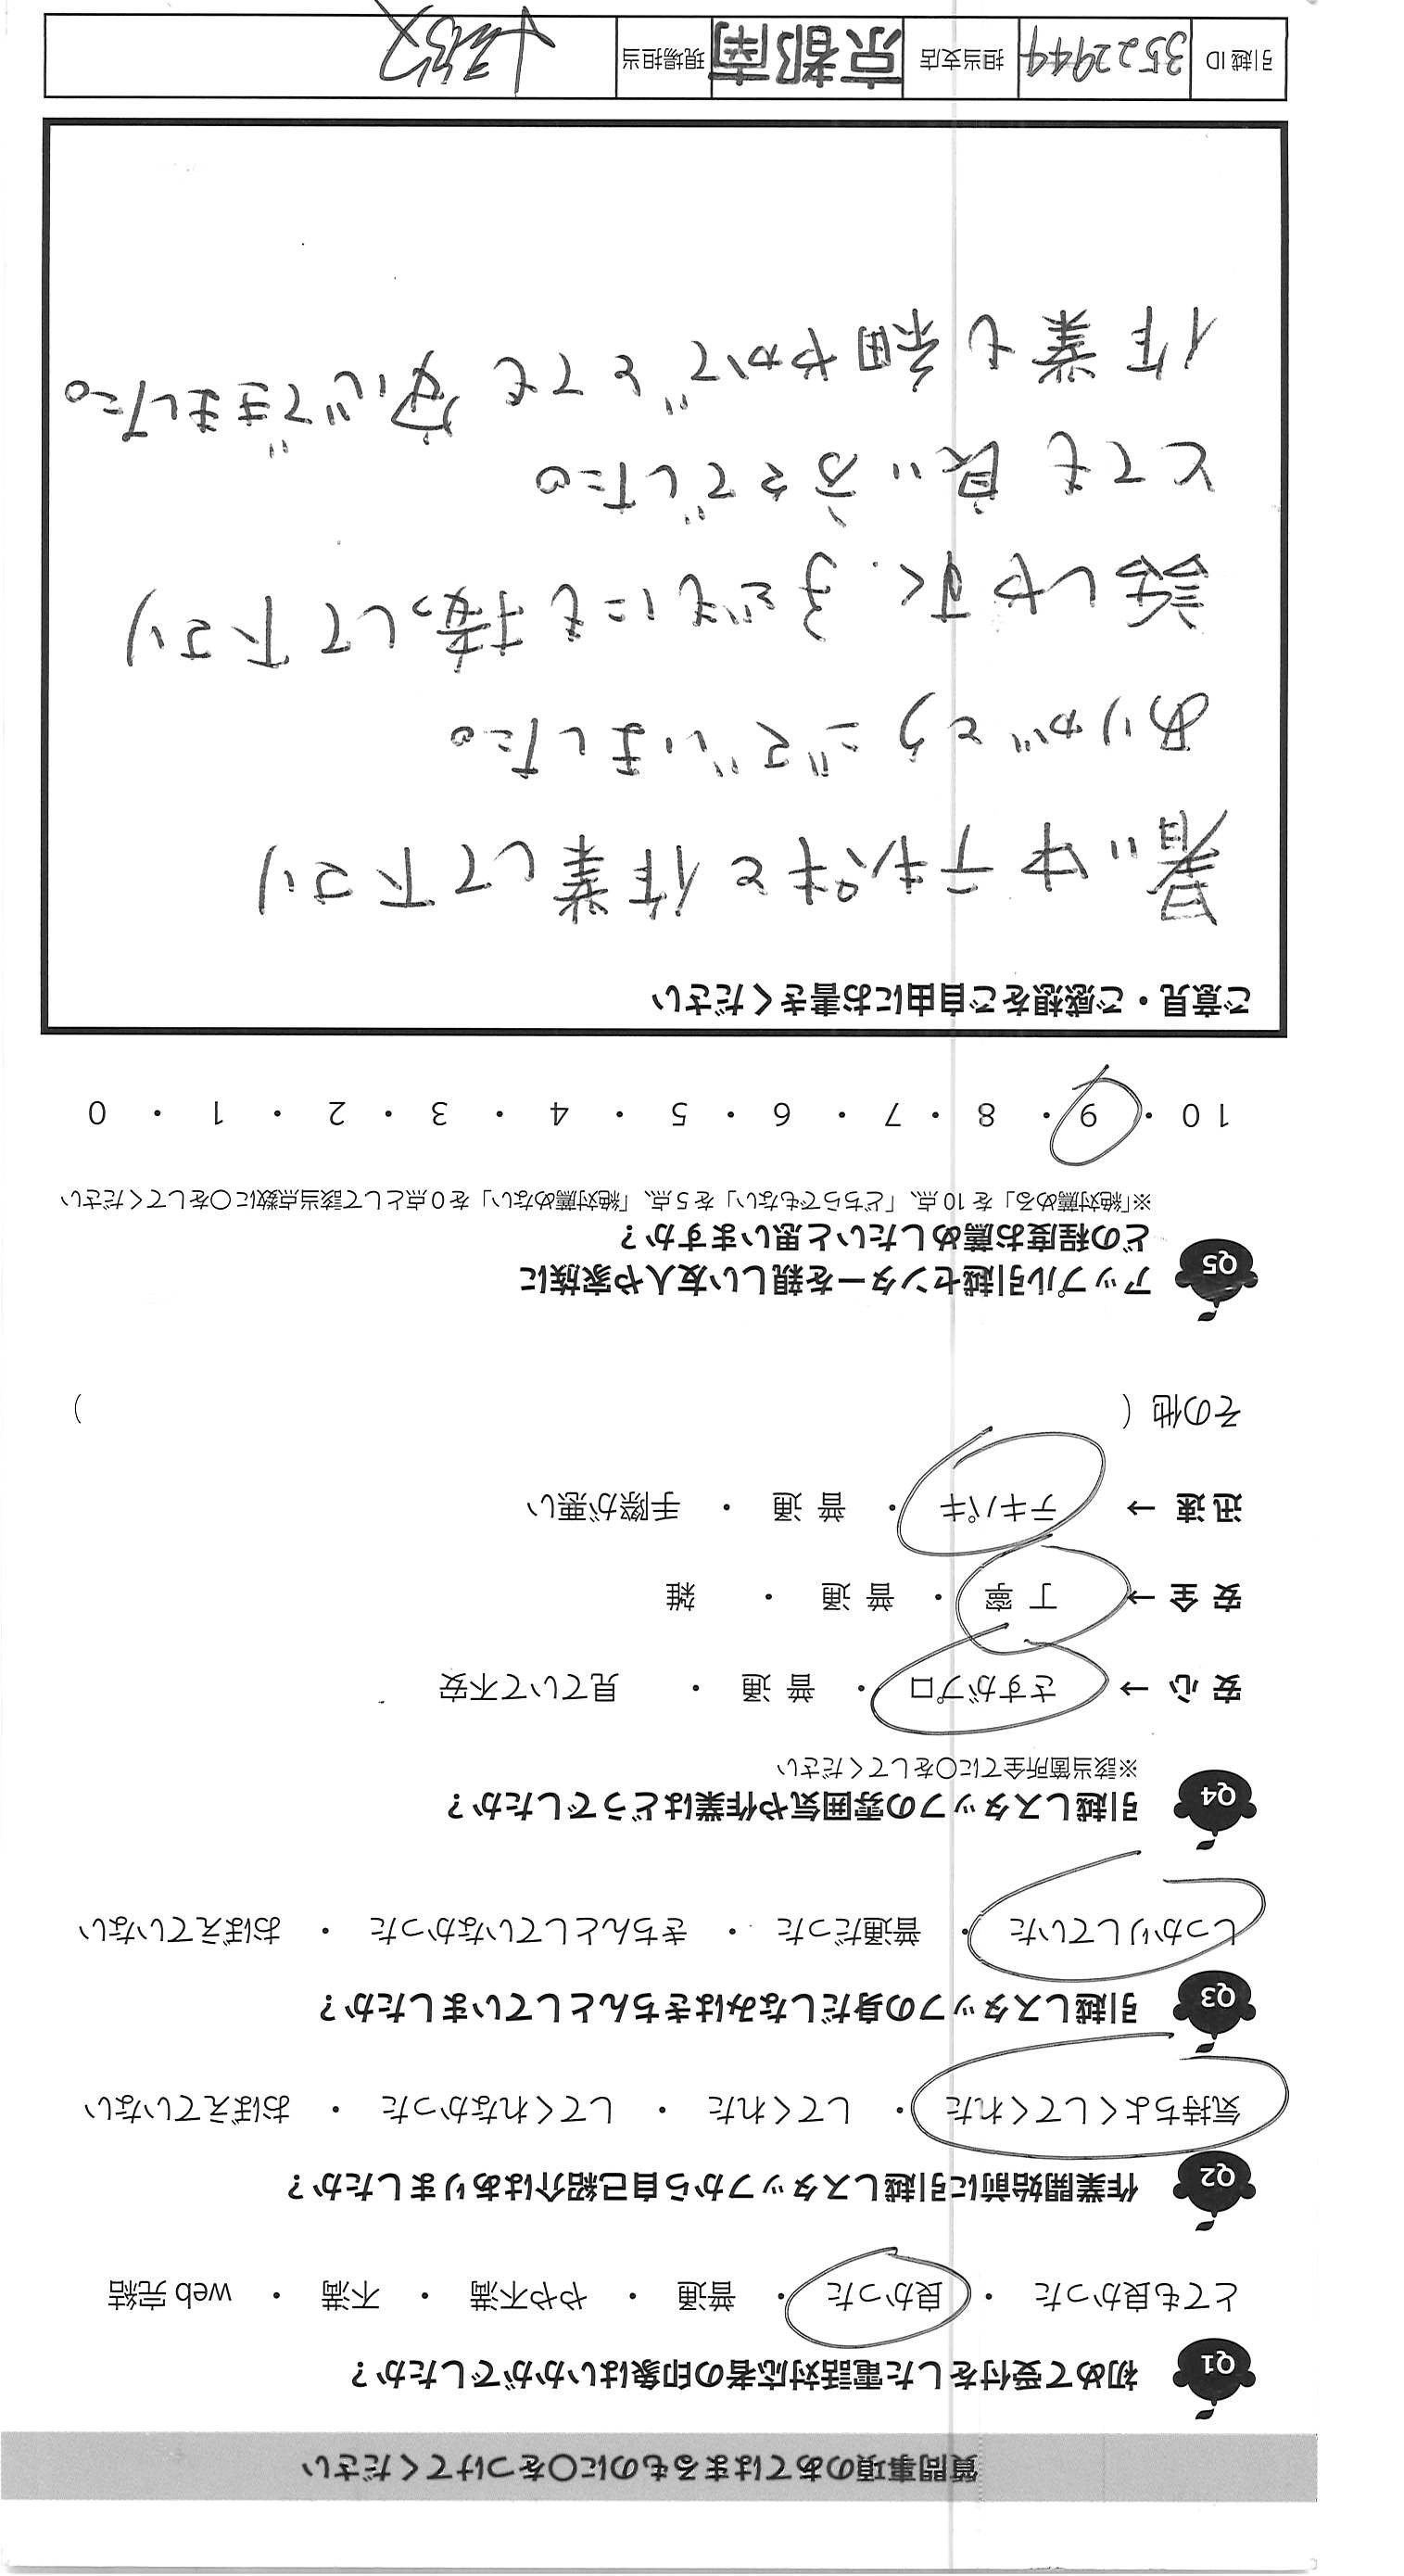 質問事項のあてはまるものに〇をつけてください
Q1 初めて受付をした電話対応者の印象はいかがでしたか？
とても良かった ・ 良かった ・ 普通 ・ やや不満 ・ 不満 ・ web完結
Q2 作業開始前に引越しスタッフから自己紹介はありましたか？
気持ちよくしてくれた ・ してくれた ・ してくれなかった ・ おぼえていない
Q3 引越しスタッフの身だしなみはきちんとしていましたか？
しっかりしていた ・ 普通だった ・ きちんとしていなかった ・ おぼえていない
Q4 引越しスタッフの雰囲気や作業はどうでしたか？
※該当箇所全てに〇をしてください
安心 → さすがプロ ・ 普通 ・ 見ていて不安
安全 → 丁寧 ・ 普通 ・ 雑
迅速 → テキパキ ・ 普通 ・ 手際が悪い
その他（ ）
Q5 アップル引越センターを親しい友人や家族に
どの程度お薦めしたいと思いますか？
※「絶対薦める」を10点、「どちらでもない」を5点、「絶対薦めない」を0点として該当点数に〇をしてください
10 ・ 9 ・ 8 ・ 7 ・ 6 ・ 5 ・ 4 ・ 3 ・ 2 ・ 1 ・ 0
ご意見・ご感想をご自由にお書きください
暑い中テキパキと作業して下さり
ありがとうございました。
話しやすく、子どもにも接して下さり
とても良い方々でした。
作業も細やかで とても安心できました。
引越ID 3522944 担当支店 京都南 現場担当